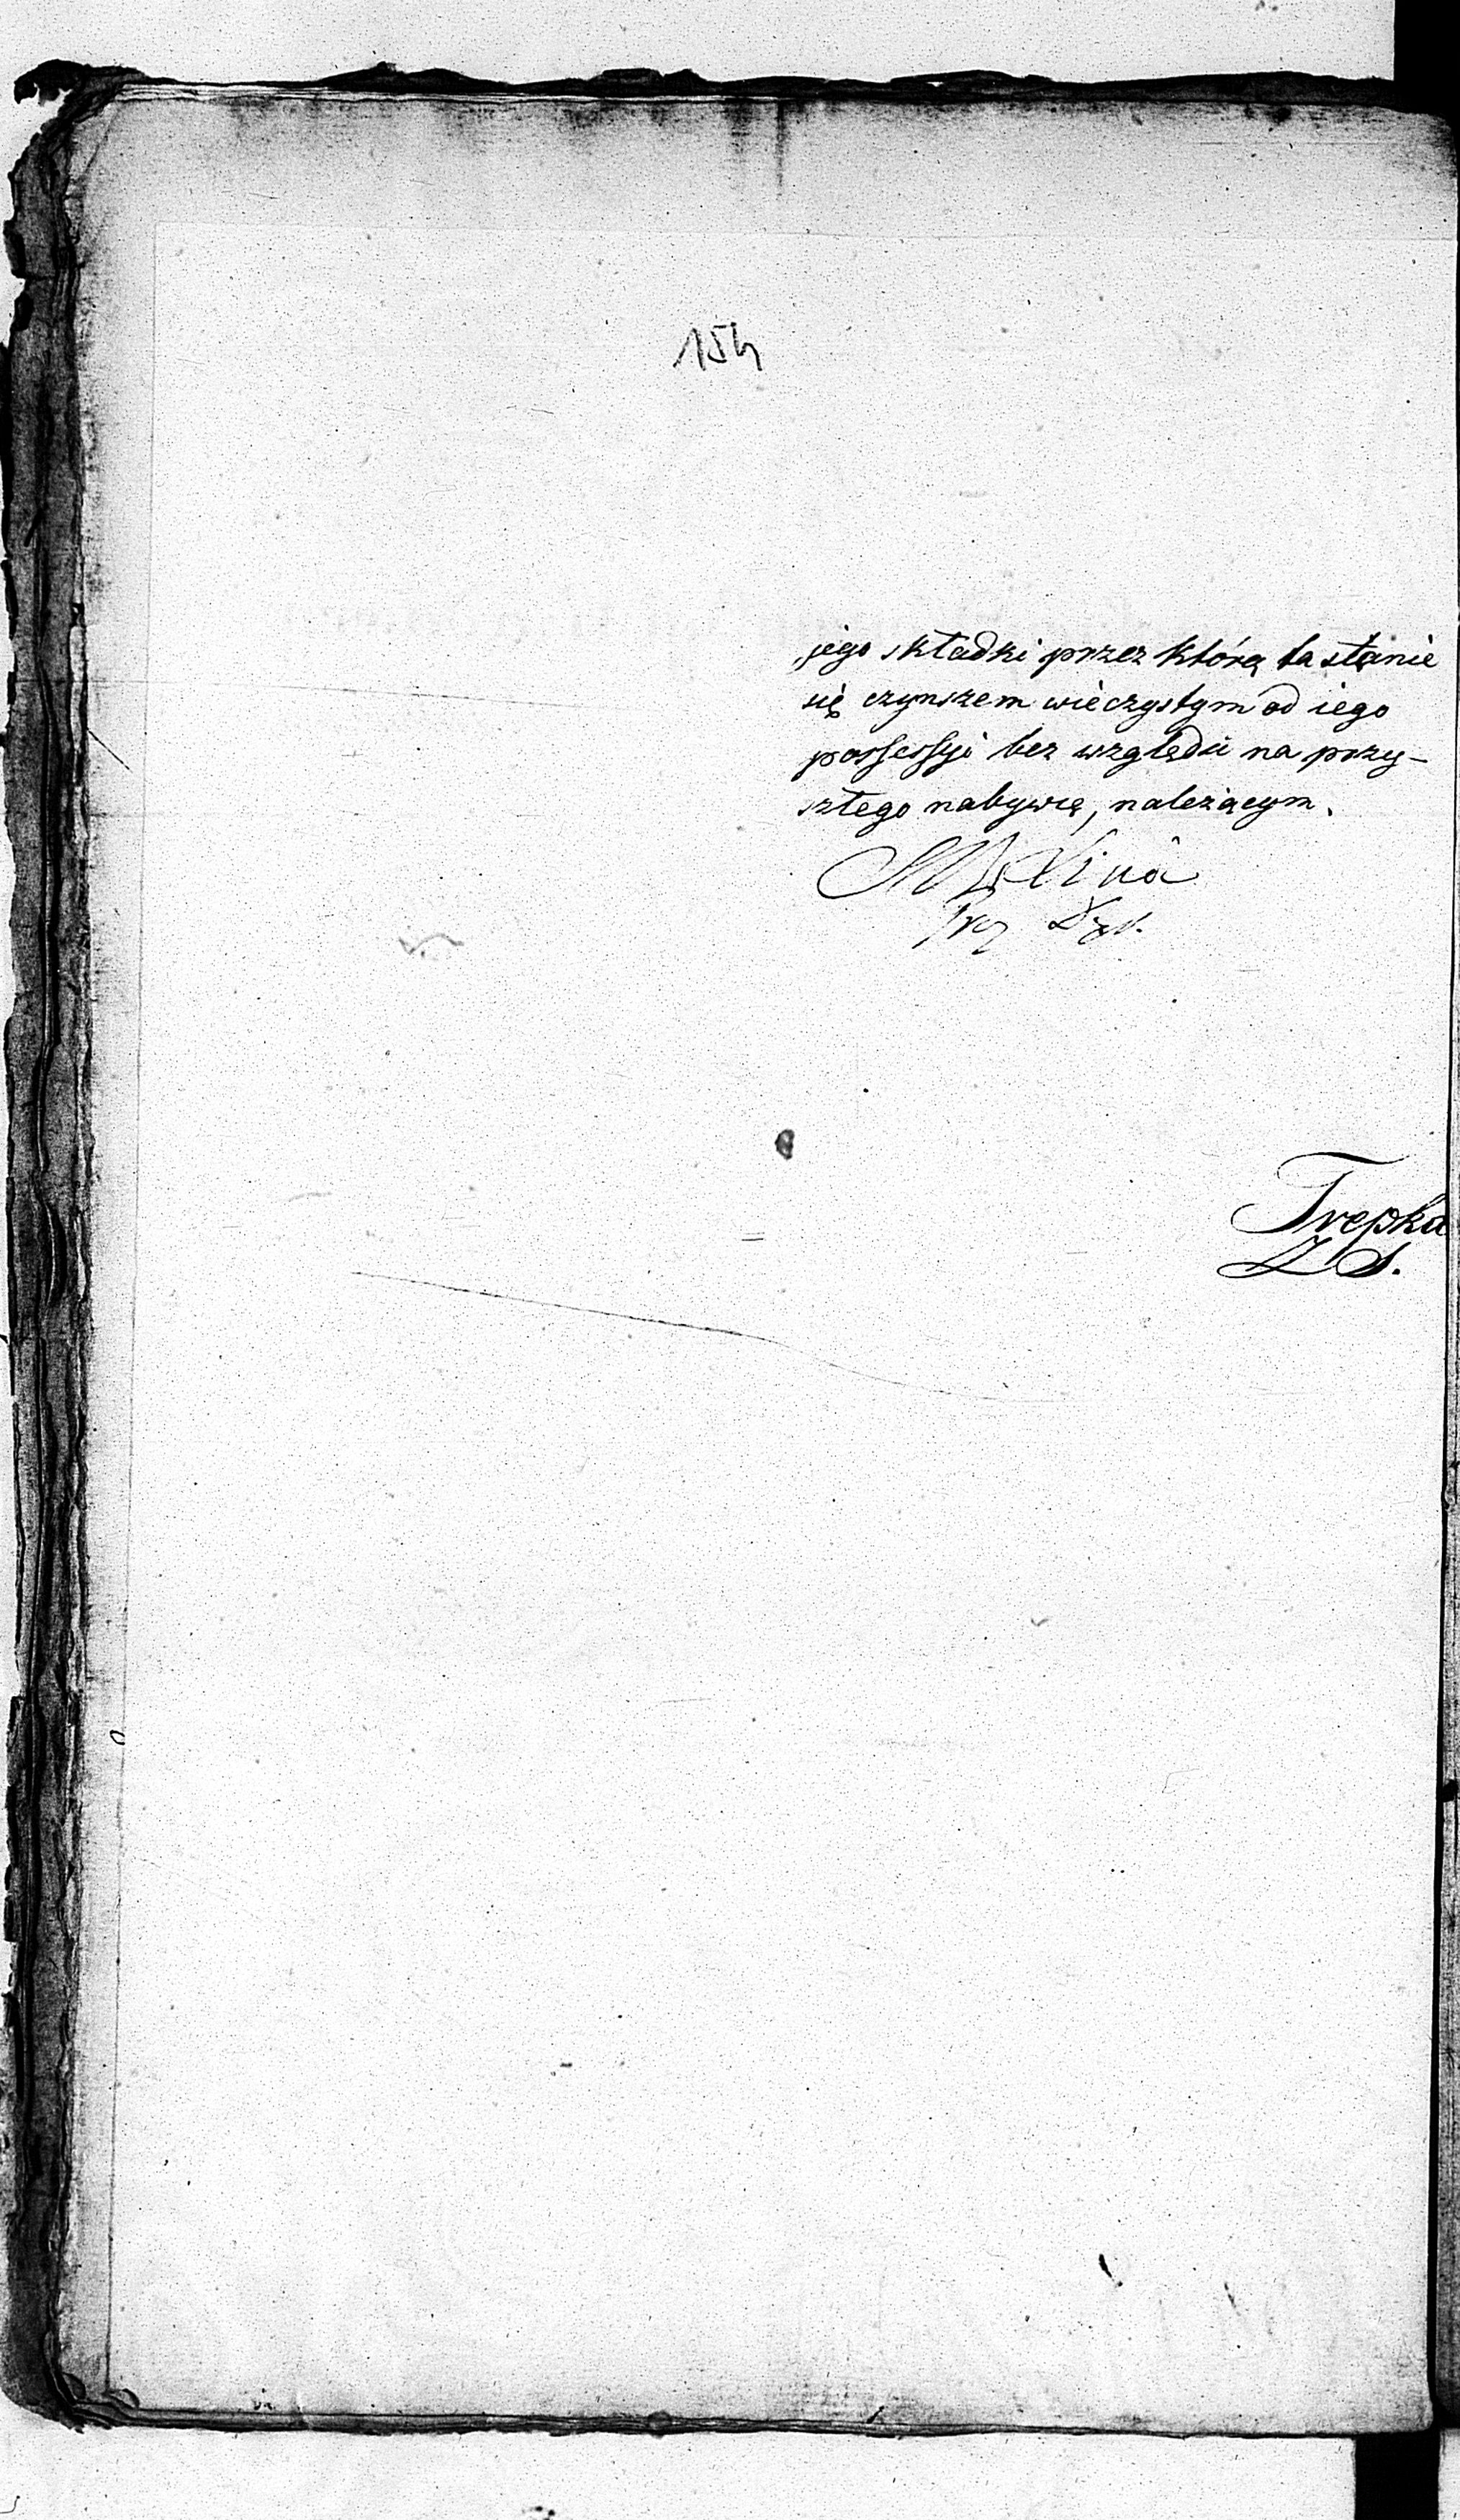 154
jego składki przez którą ta stanie
się czynszem wieczystym od iego
possessyi bez względu na przy-
szłego nabywcę, należącym.
Trepka
Z S.